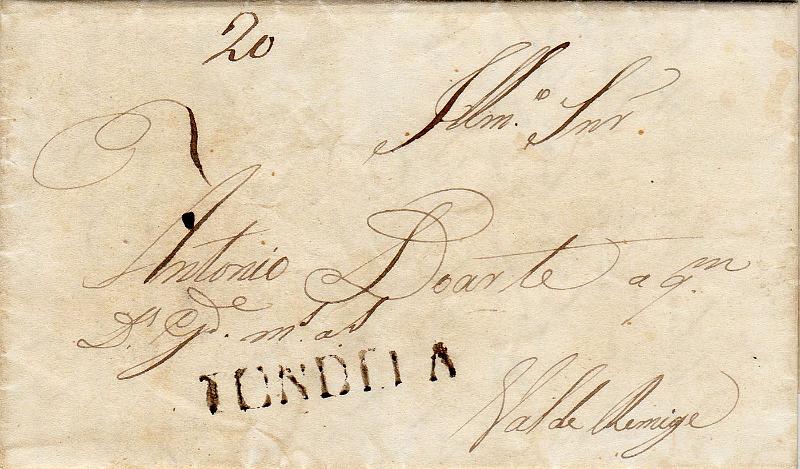 20
Illm.º Snr
Antonio Doarte a q.m
D.s G.de m.s a.s
TONDELA
Val de Remige